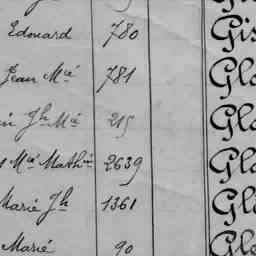 Edouard 780 Gis
Jean Mié 781 Glo
Jh Mié 215 Glo
Mié Mathin 2639 Gla
Marie Jh 1361 Gla
Marie 90 Gle